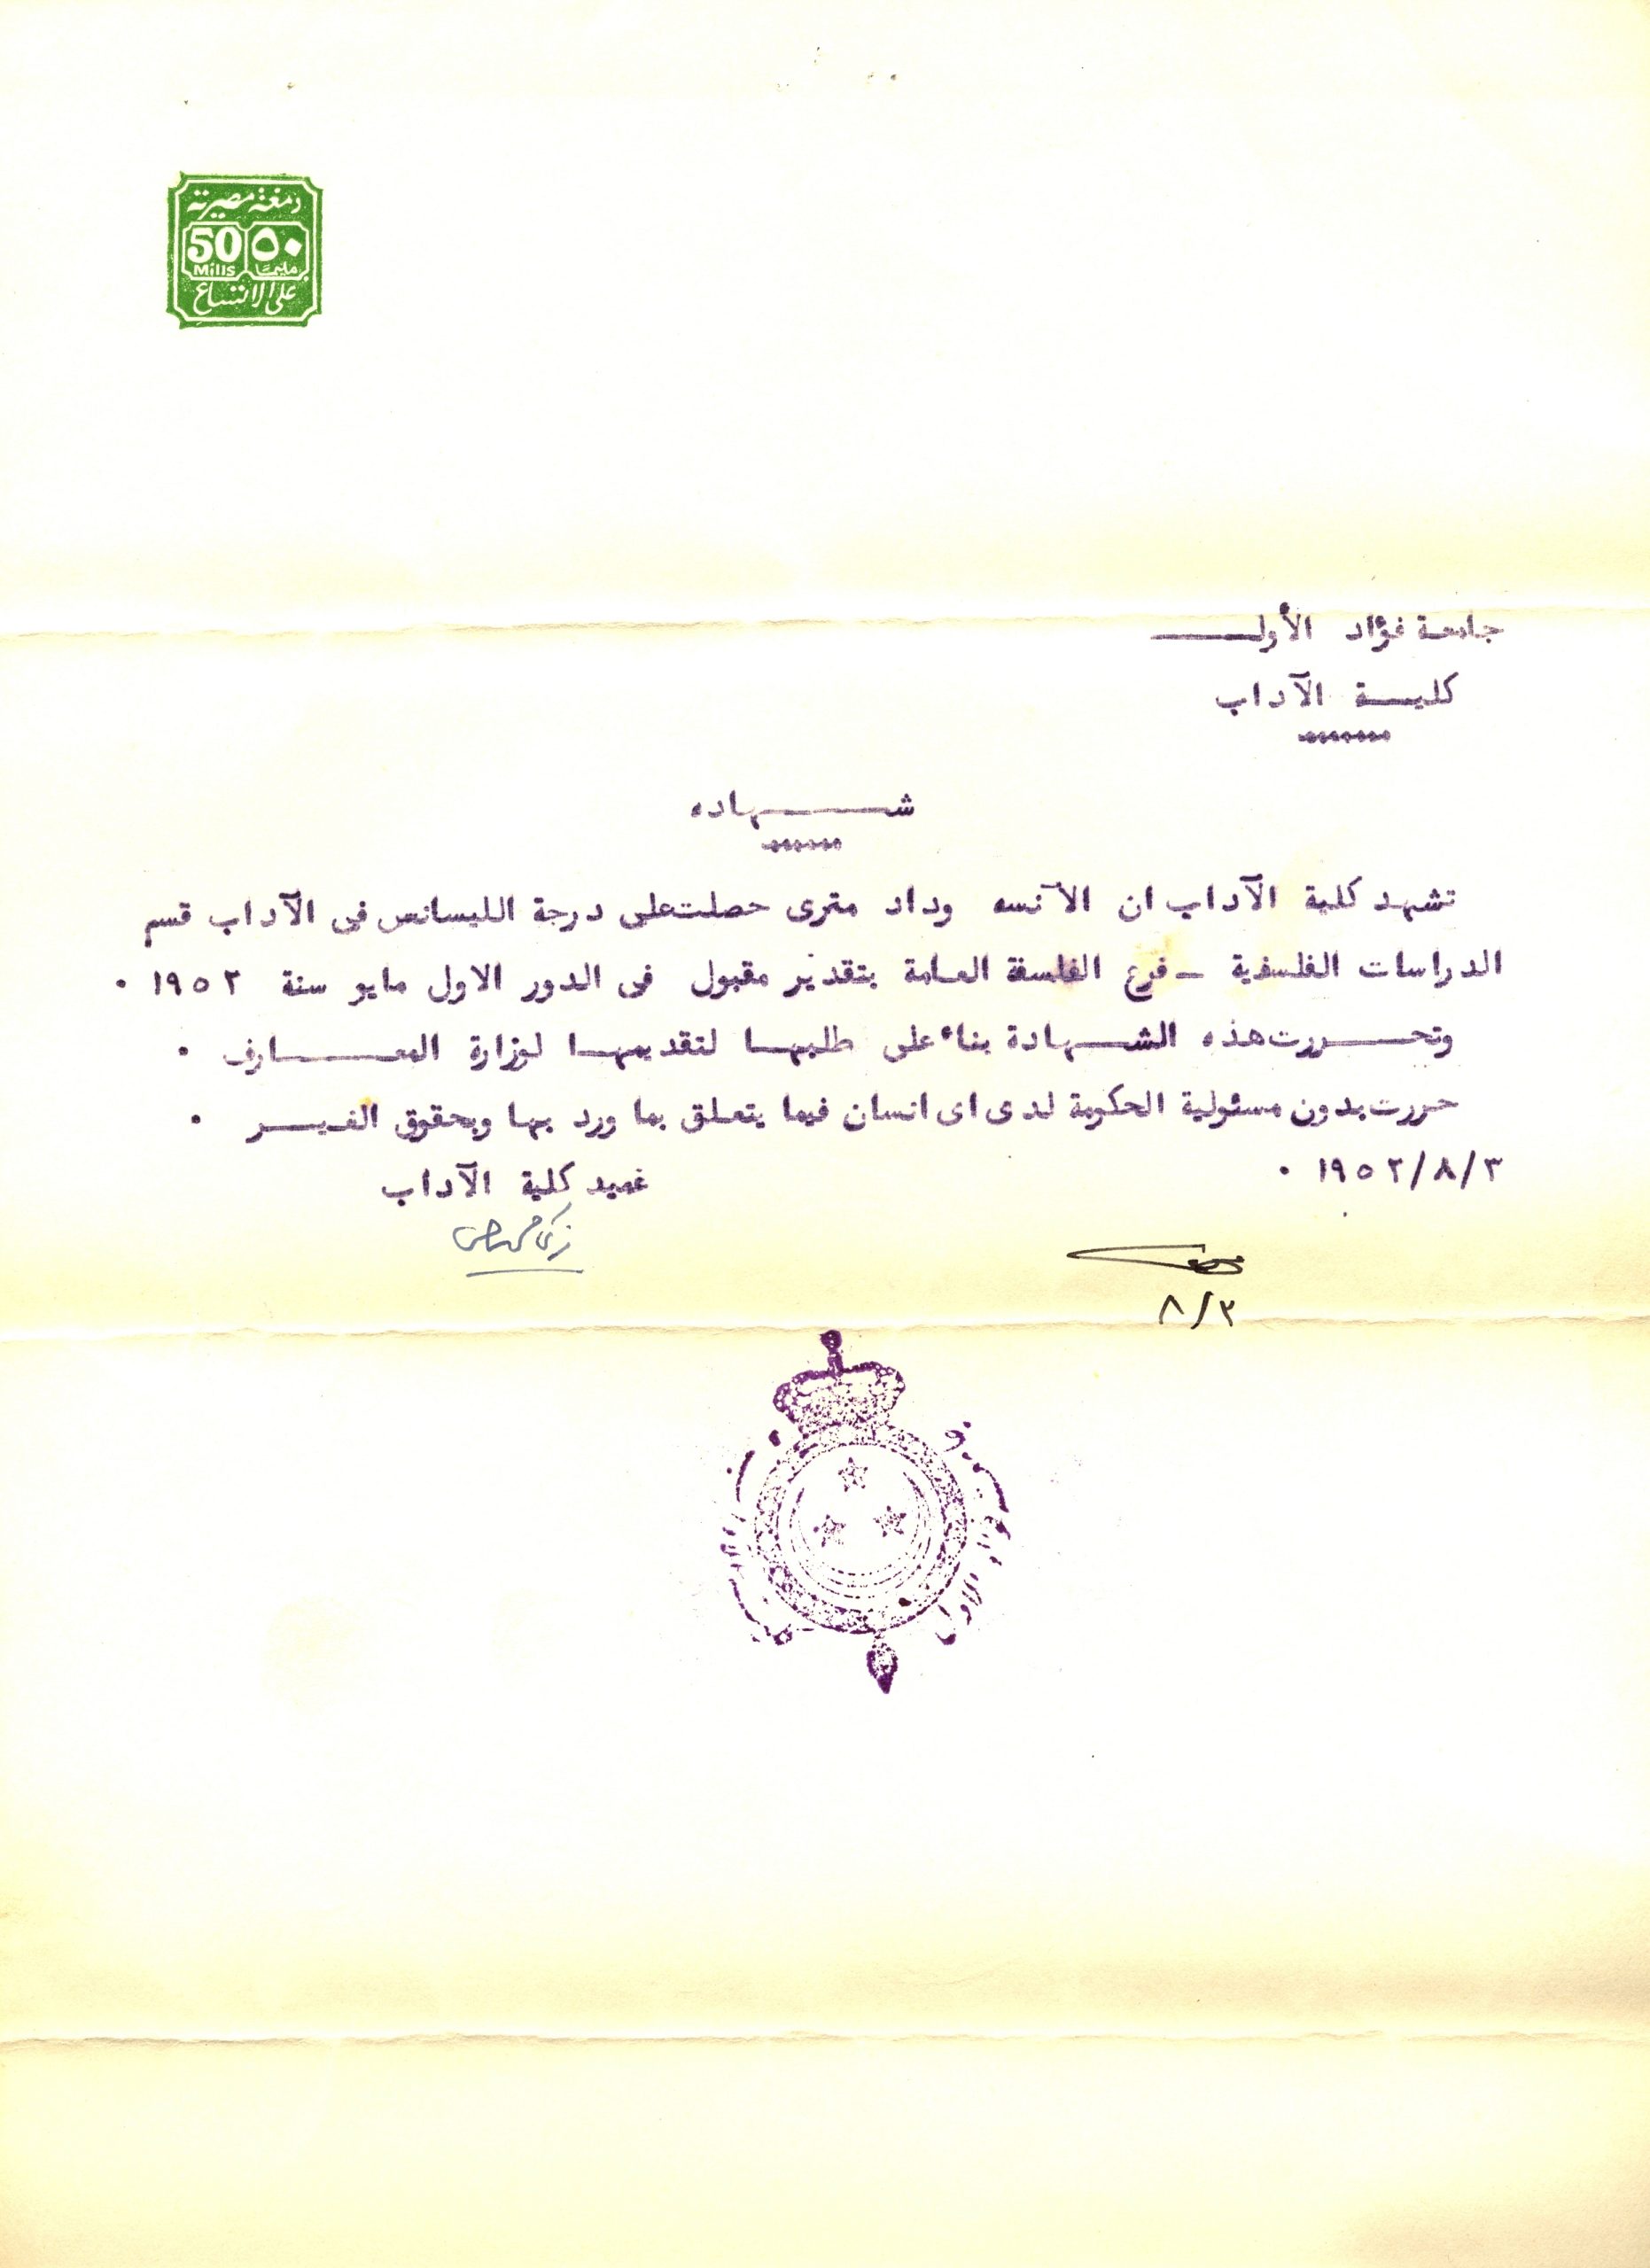 دمغة مصرية
50 ٥٠
Mills مليمًا
على الاتساع
جامعة فؤاد الأول
كلية الآداب
شهاده
تشهد كلية الآداب ان الآنسه وداد مترى حصلت على درجة الليسانس فى الآداب قسم
الدراسات الفلسفية ــ فرع الفلسفة العامة بتقدير مقبول فى الدور الاول مايو سنة ١٩٥٢ ٠
وتحررت هذه الشهادة بناء على طلبها لتقديمها لوزارة المعارف ٠
حررت بدون مسئولية الحكومة لدى اى انسان فيما يتعلق بما ورد بها وبحقوق الغير ٠
١٩٥٢/٨/٣ ٠
عميد كلية الآداب
٨/٣